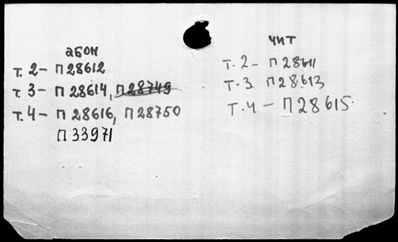 абон
т. 2 – П 28612
т. 3 – П 28614, П 28749
т. 4 – П 28616, П 28750
П 33971
чит
т. 2 – П 28611
т. 3 П 28613
т. 4 – П 28615